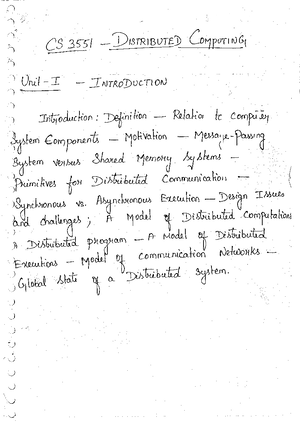 CS 3551 — DISTRIBUTED COMPUTING
Unit-I — INTRODUCTION
Introduction: Definition — Relation to computer
System Components — Motivation — Message-Passing
System versus Shared Memory Systems —
Primitives for Distributed Communication —
Synchronous vs. Asynchronous Execution — Design Issues
and challenges; A Model of Distributed Computations
A Distributed program — A Model of Distributed
Executions — Model of communication Networks —
Global State of a Distributed System.